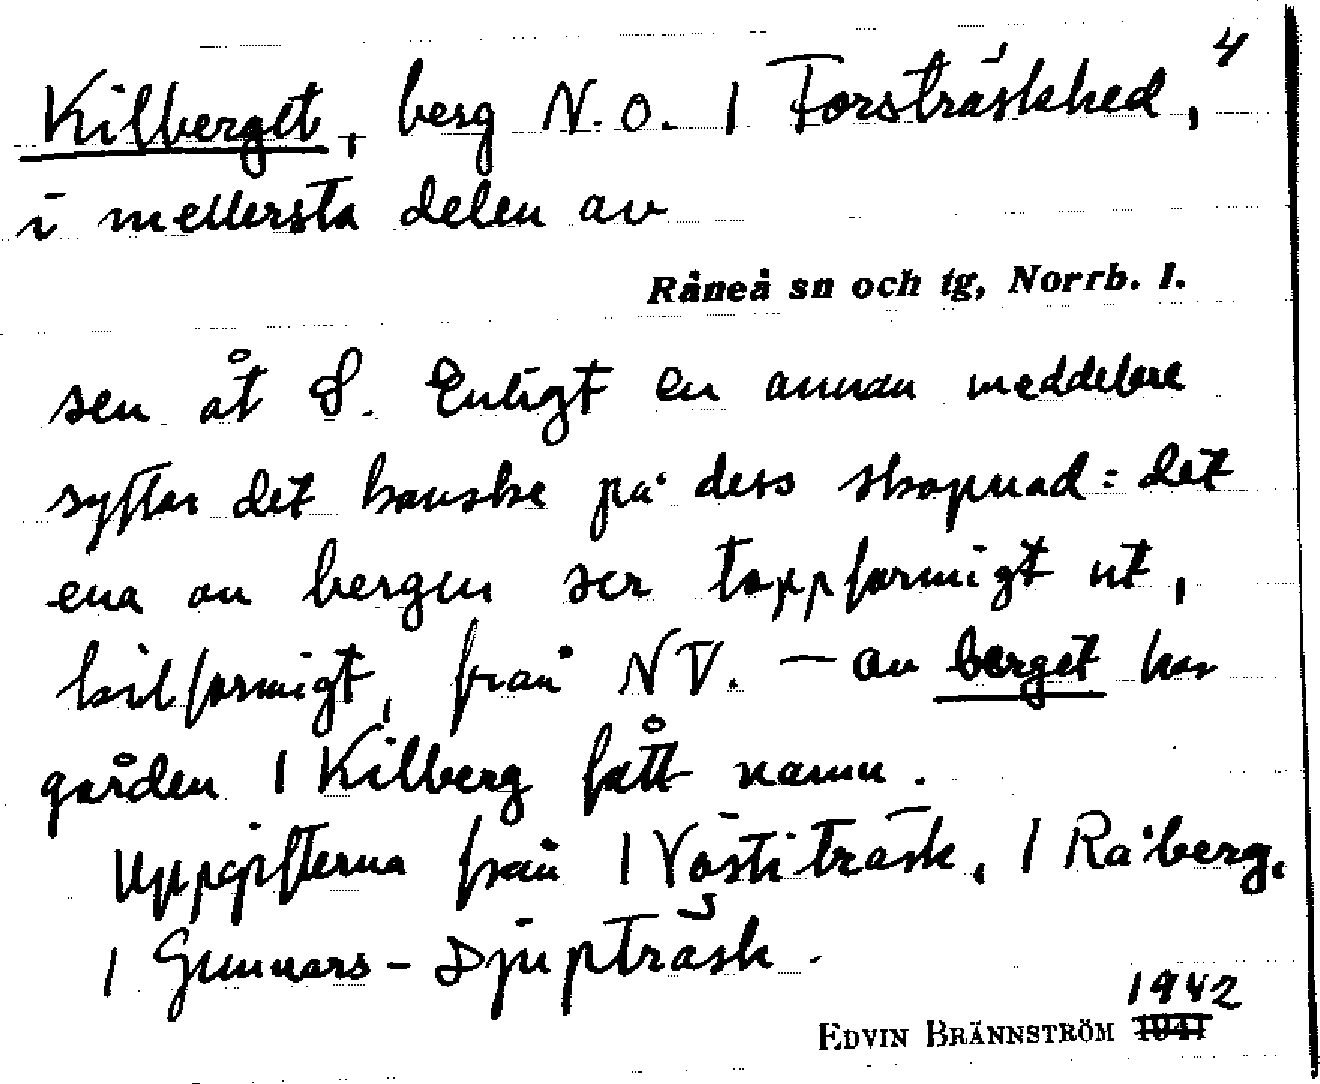 4
Kilberget, berg N.O. 1 Forsträskhed,
i mellersta delen av
Råneå sn och tg, Norrb. l.
sen åt S. Enligt en annan meddelare
syftar det kanske på dess skapnad: det
ena av bergen ser toppformigt ut,
kilformigt, från NV. — Av berget har
gården 1 Kilberg fått namn.
Uppgifterna från 1 Västiträsk, 1 Råberg,
1 Gunnars-Djupträsk.
1942
EDVIN BRÄNNSTRÖM 1941